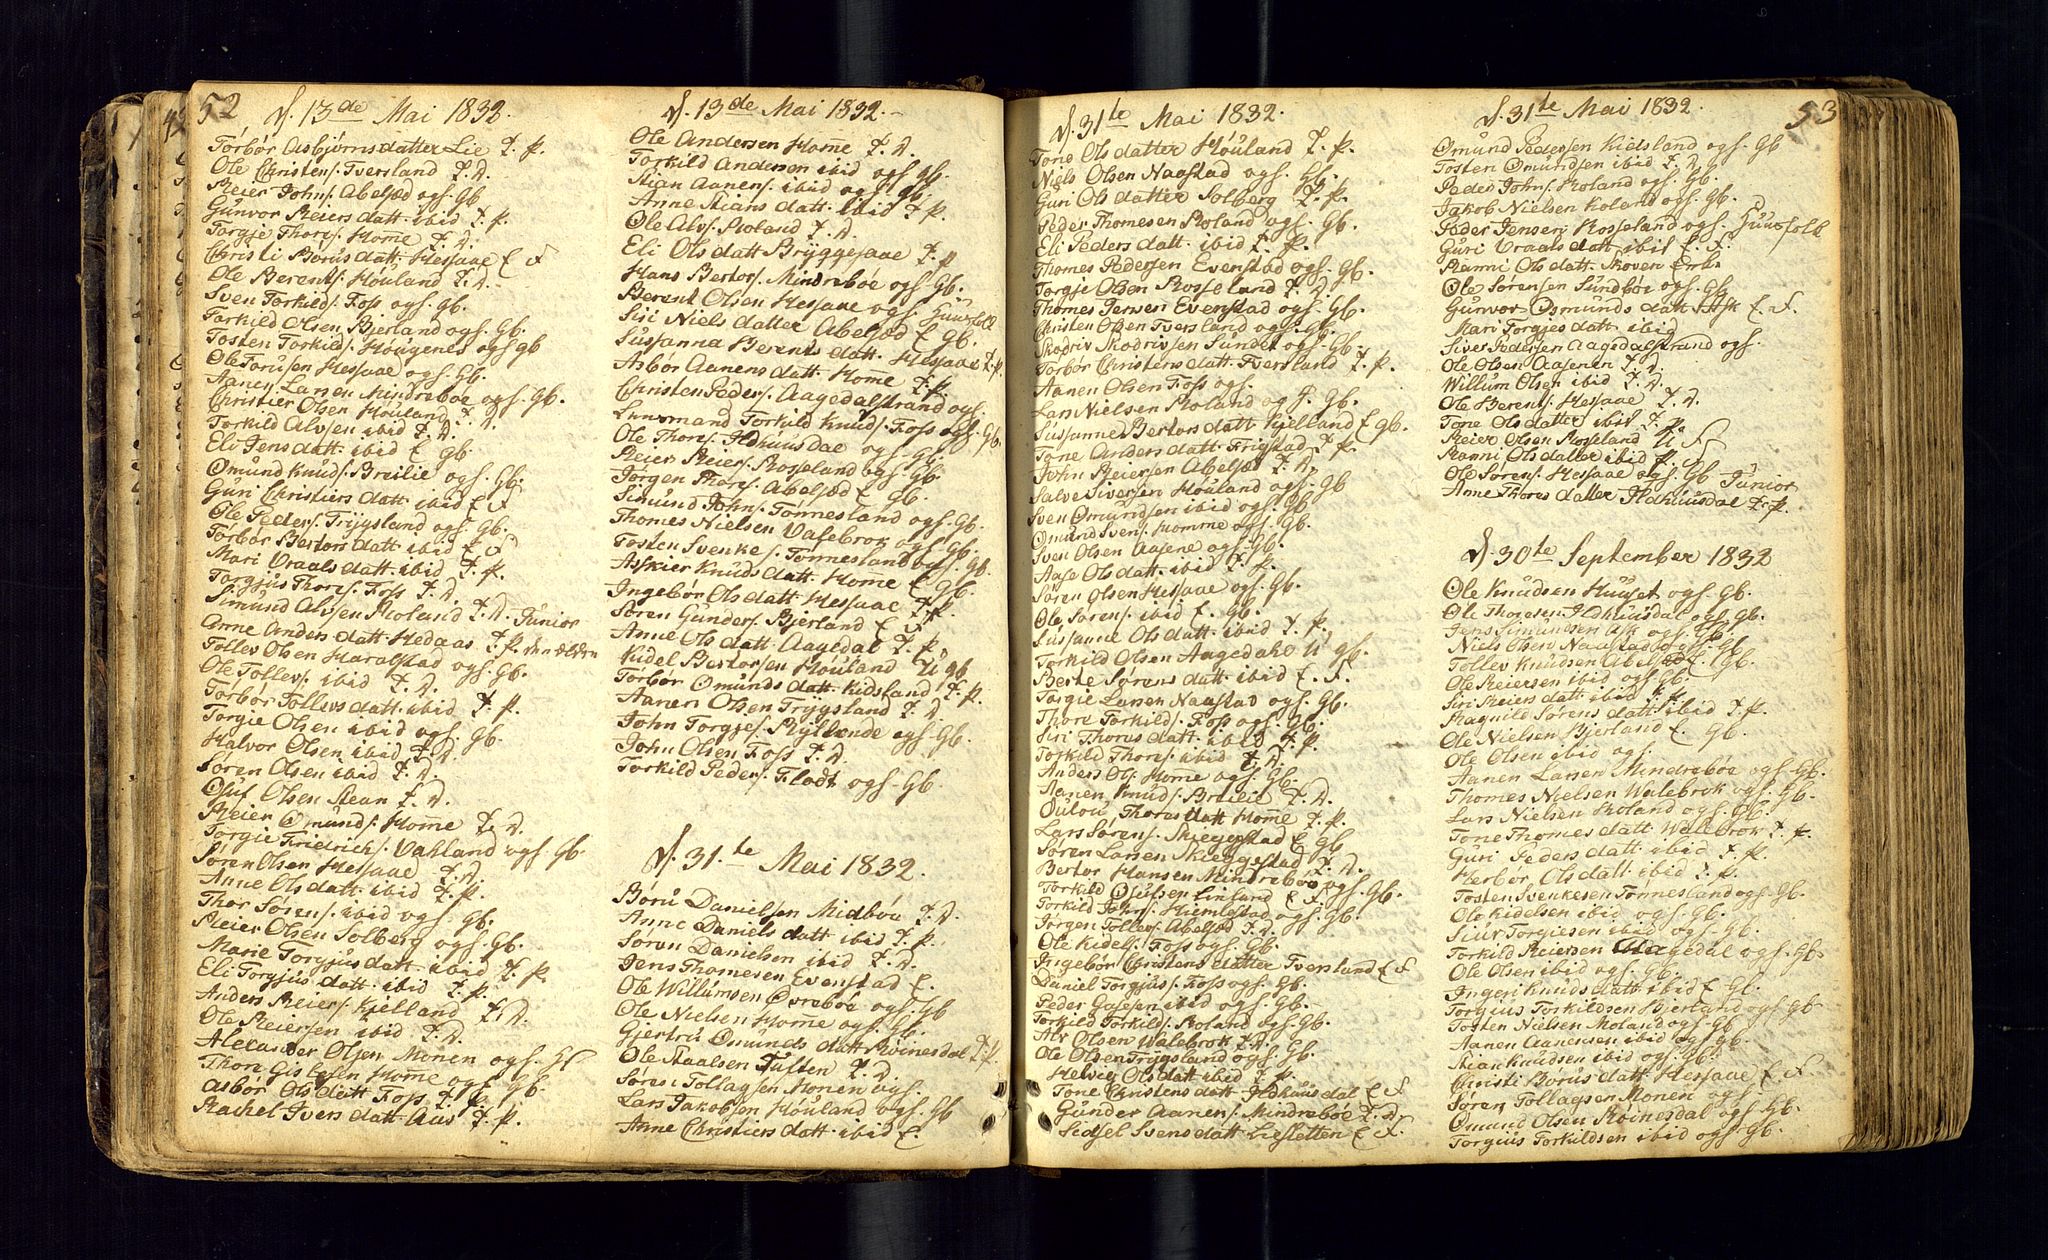 52
d. 13de Mai 1832.
Torbør Asbjørnsdatter Lie T. P.
Ole Christens. Tversland T. D.
Reier Johns. Abelsæd ogs. Gb
Gunvor Reiers datt. ibid T. P.
Torgje Thores. Home T. D.
Christi Børus datt. Hessaae E F
Ole Berents. Houland T. D.
Sven Torkilds. Foss ogs. Gb.
Torkild Olsen Bjerland ogs. Gb.
Tosten Torkilds. Hougenes ogs Gb
Ole Torusen Hessaae ogs. Gb.
Aanen Larsen Mindrebøe ogs. Gb.
Christier Olsen Houland T. D.
Torkild Alvsen ibid T. D.
Eli Jens datt. ibid E Gb.
Omund Knuds. Breilie ogs. Gb.
Guri Christiers datt. ibid E F
Ole Peders. Trygsland ogs. Gb.
Torbør Bertors datt. ibid E F
Mari Vraals datt. ibid T. P.
Torgjus Thores. Foss T. D.
Simund Alvsen Roland T. D. Junior
Anne Anders datt. Hedaas T. P. den Ældre
Tollev Olsen Haralstad ogs. Gb.
Ole Tollevs. ibid T. D.
Torbør Tollevs datt. ibid T. P.
Torgie Olsen ibid ogs. Gb.
Halvor Olsen ibid T. D.
Søren Olsen ibid T. D.
Oluf Olsen Stean T. D.
Reier Omunds. Home T. D.
Torgie Friedrichs. Vatland ogs. Gb.
Søren Olsen Hessaae T. D.
Anne Ols datt. ibid T. P.
Thor Sørens. ibid ogs. Gb.
Reier Olsen Solberg ogs. Gb.
Marie Torgjus datt. ibid T. P.
Eli Torgjus datt. ibid T. P.
Anders Reiers. Kjelland T. D.
Ole Reiersen ibid T. D.
Alexander Olsen Monen ogs. Gb
Thore Gislesen Home ogs. Gb.
Asbør Ols datt. Foss T. P.
Rachel Ivers datt. Aas T. P.
d. 13de Mai 1832.
Ole Andersen Home T. D.
Torkild Andersen ibid ogs. Gb.
Stian Aanens. ibid ogs. Gb.
Anne Stians datt. ibid T. P.
Ole Alvs. Roland T. D.
Eli Ols datt. Bryggesaae T. P
Hans Bertors. Mindrebøe ogs. Gb.
Berent Olsen Hessaae ogs. Huusfolk
Siri Niels datter Abelsæd E Gb.
Sussanna Berents datt. Hessaae T. P.
Asbør Aanens datt. Home T. P.
Christen Peders. Aagedalstrand ogs.
Lensmand Torkild Knuds. Foss ogs. Gb.
Ole Thores. Ildhuusdal ogs. Gb.
Reier Reiers. Rosseland ogs. Gb.
Jørgen Thores. Abelsæd E Gb.
Simund Johns. Tønnesland ogs. Gb.
Thomes Nielsen Valebrok ogs. Gb.
Tosten Svenkes. Tønnesland ogs. Gb.
Askier Knuds datt. Home E Gb.
Ingebør Ols datt. Hessaae T. P.
Søren Gunders. Bjerland E F
Anne Ols datt. Aagedal T. P.
Kidel Bertorsen Houland U Gb
Torbør Omunds datt. Kidsland T. P.
Aanen Olsen Trygsland T. D.
John Torgjes. Ryllende ogs. Gb.
John Olsen Foss T. D.
Torkild Peders. Flodt ogs. Gb.
d. 31.te Mai 1832.
Børu Danielsen Midbøe T. D.
Anne Daniels datt. ibid T. P.
Søren Danielsen ibid T. D.
Jens Thomesen Evenstad E.
Ole Willumsen Øvrebøe ogs. Gb
Ole Nielsen Home ogs. Gb.
Gjertru Omunds datt. Røinesdal T. P.
Ole Staalsen Tuften T. D.
Søren Tollagsen Monen ogs.
Lars Jakobsen Houland ogs. Gb
Anne Christiers datt. ibid E.
d. 31te Mai 1832.
Tone Ols datter Houland T. P.
Niels Olsen Naastad ogs. Gb.
Guri Ols datter Solberg T. P.
Peder Thomesen Roland ogs. Gb.
Eli Peders datt. ibid T. P.
Thomes Pedersen Evenstad ogs. Gb.
Torgje Olsen Rosseland T. D.
Thomes Jensen Evenstad ogs. Gb.
Christen Olsen Tversland ogs. Gb.
Skodriv Skodrivsen Sundet ogs. Gb.
Torbør Christens datt. Tversland T. P.
Aanen Olsen Foss ogs.
Lars Nielsen Roland ogs. Gb.
Sussanne Bertors datt. Kjelland E Gb.
Tone Anders datt. Frigstad T. P.
John Reiersen Abelsæd T. D.
Salve Siversen Houland ogs. Gb
Sven Omundsen ibid ogs. Gb
Omund Svens. Homme ogs. Gb.
Sven Olsen Aasene ogs. Gb.
Aase Ols datt. ibid T. P.
Søren Olsen Hessaae ogs. Gb.
Ole Sørens. ibid E. Gb.
Sussanne Ols datt. ibid T. P.
Torkild Olsen Aagedahl U Gb.
Berte Sørens datt. ibid E. F.
Torgie Larsen Naastad ogs. Gb.
Thore Torkilds. Foss ogs. Gb.
Siri Thores datt. ibid T. P.
Torkild Thores. ibid T. D.
Anders Ols. Home ogs. Gb.
Aanen Knuds. Breilie T. D.
Oulou Thores datt. Home T. P.
Lars Sørens. Skieggestad E Gb
Søren Larsen Skieggestad T. D.
Bertor Hansen Mindrebøe ogs. Gb.
Torkild Olufsen Linland E F.
Torkild Johns. Hiemlestad ogs. Gb.
Jørgen Tollevs. Abelsæd T. D.
Ole Kidels. Foss ogs. Gb.
Ingebør Christens datter Tversland E F
Daniel Torgjus. Foss ogs. Gb.
Peder ibid ogs. Gb.
Torkild Torkilds. Roland ogs. Gb.
Olsen Walebrok T. D.
Ole Olsen Trygsland ogs. Gb.
Helvig Ols datt. ibid T. P.
Tone Christens datt. Ildhuusdal E F
Gunder Aanens. Mindrebøe T. D.
Sidsel Svens datt. Liesletten E F.
d. 31te Mai 1832.
53
Omund Pedersen Kidsland ogs. Gb
Tosten Omundsen ibid T. D.
Peder Johns. Roland ogs. Gb.
Jakob Nielsen Roland ogs. Gb.
Peder Jensen Rosseland ogs. Huusfolk
Guri Vraals datt. ibid E. F.
Ranni Ols datt. Skoven Enk.
Ole Sørensen Sundbøe ogs. Gb
Gunvor Osmunds datt. Ask E. F.
Mari Torgjes datt. ibid
Siver Pedersen Aagedalstrand ogs.
Ole Olsen Aasenen T. D.
Willum Olsen ibid T. D.
Ole Berents. Hessaae T. D.
Tone Ols datter ibid T. P.
Reier Olsen Rosseland U F
Ranni Ols datter ibid P. F
Ole Sørens. Hessaae ogs. Gb Junior
Anne Thores datter Ildhuusdal T. P.
d. 30te September 1832
Ole Knudsen Huuset ogs. Gb.
Ole Thoresen Ildhuusdal ogs. Gb.
Jens Simundsen Ask ogs. Gb.
Niels Olsen Naastad ogs. Gb
Tollev Knudsen Abelsæd E. Gb.
Ole Reiersen ibid ogs. Gb.
Siri Reiers datt. ibid T. P.
Ragnild Sørens datt. ibid T. P.
Ole Nielsen Bjerland E. Gb.
Ole Olsen ibid ogs.
Aanen Larsen Mindrebøe ogs. Gb.
Thomes Nielsen Walebrok ogs. Gb.
Lars Nielsen Roland ogs. Gb.
Tone Thomes datt. Walebrok T. P.
Guri Peders datt. ibid T. P.
Herbor Ols datt. ibid T. P.
Tosten Svenkesen Tønnesland ogs. Gb.
Ole Kidelsen ibid ogs. Gb.
Siur Torgiesen ibid ogs. Gb.
Torkild Reiersen Aagedal ogs. Gb.
Ole Olsen ibid ogs. Gb.
Ingeri Knuds datt. ibid E Gb.
Torgius Torkildsen Bjerland ogs. Gb
Tosten Nielsen Moland ogs. Gb
Aanen Aanensen ibid ogs. Gb
Stian Knudsen ibid ogs. Gb.
Christi Børus datt. Hessaae E. F.
Søren Tollagsen Monen ogs.
Omund Olsen Røinesdal ogs. Gb.
Torgius Torkildsen ibid ogs. Gb.